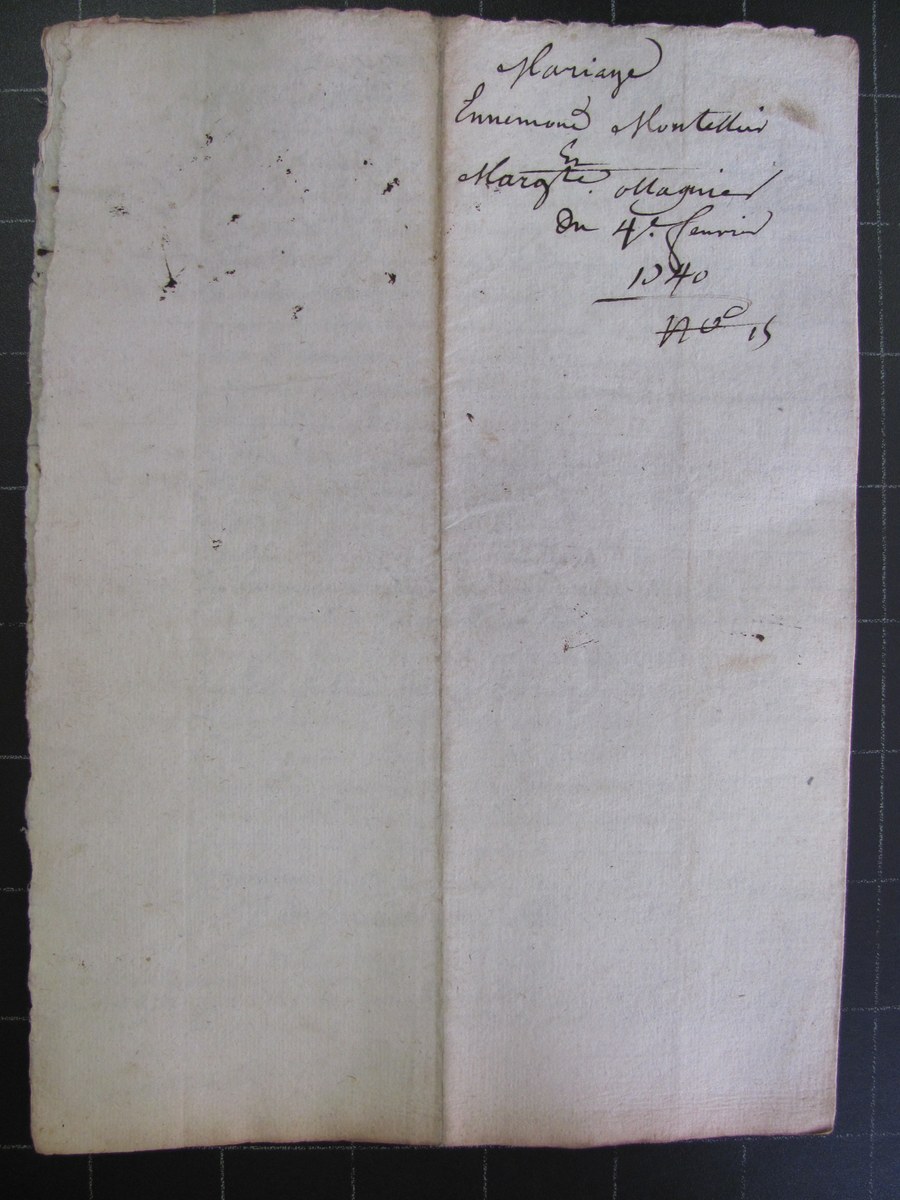 Mariage
Ennemond Montellier
Et
Margte. Magnier
Du 4e. feuvrier
1740
No 15